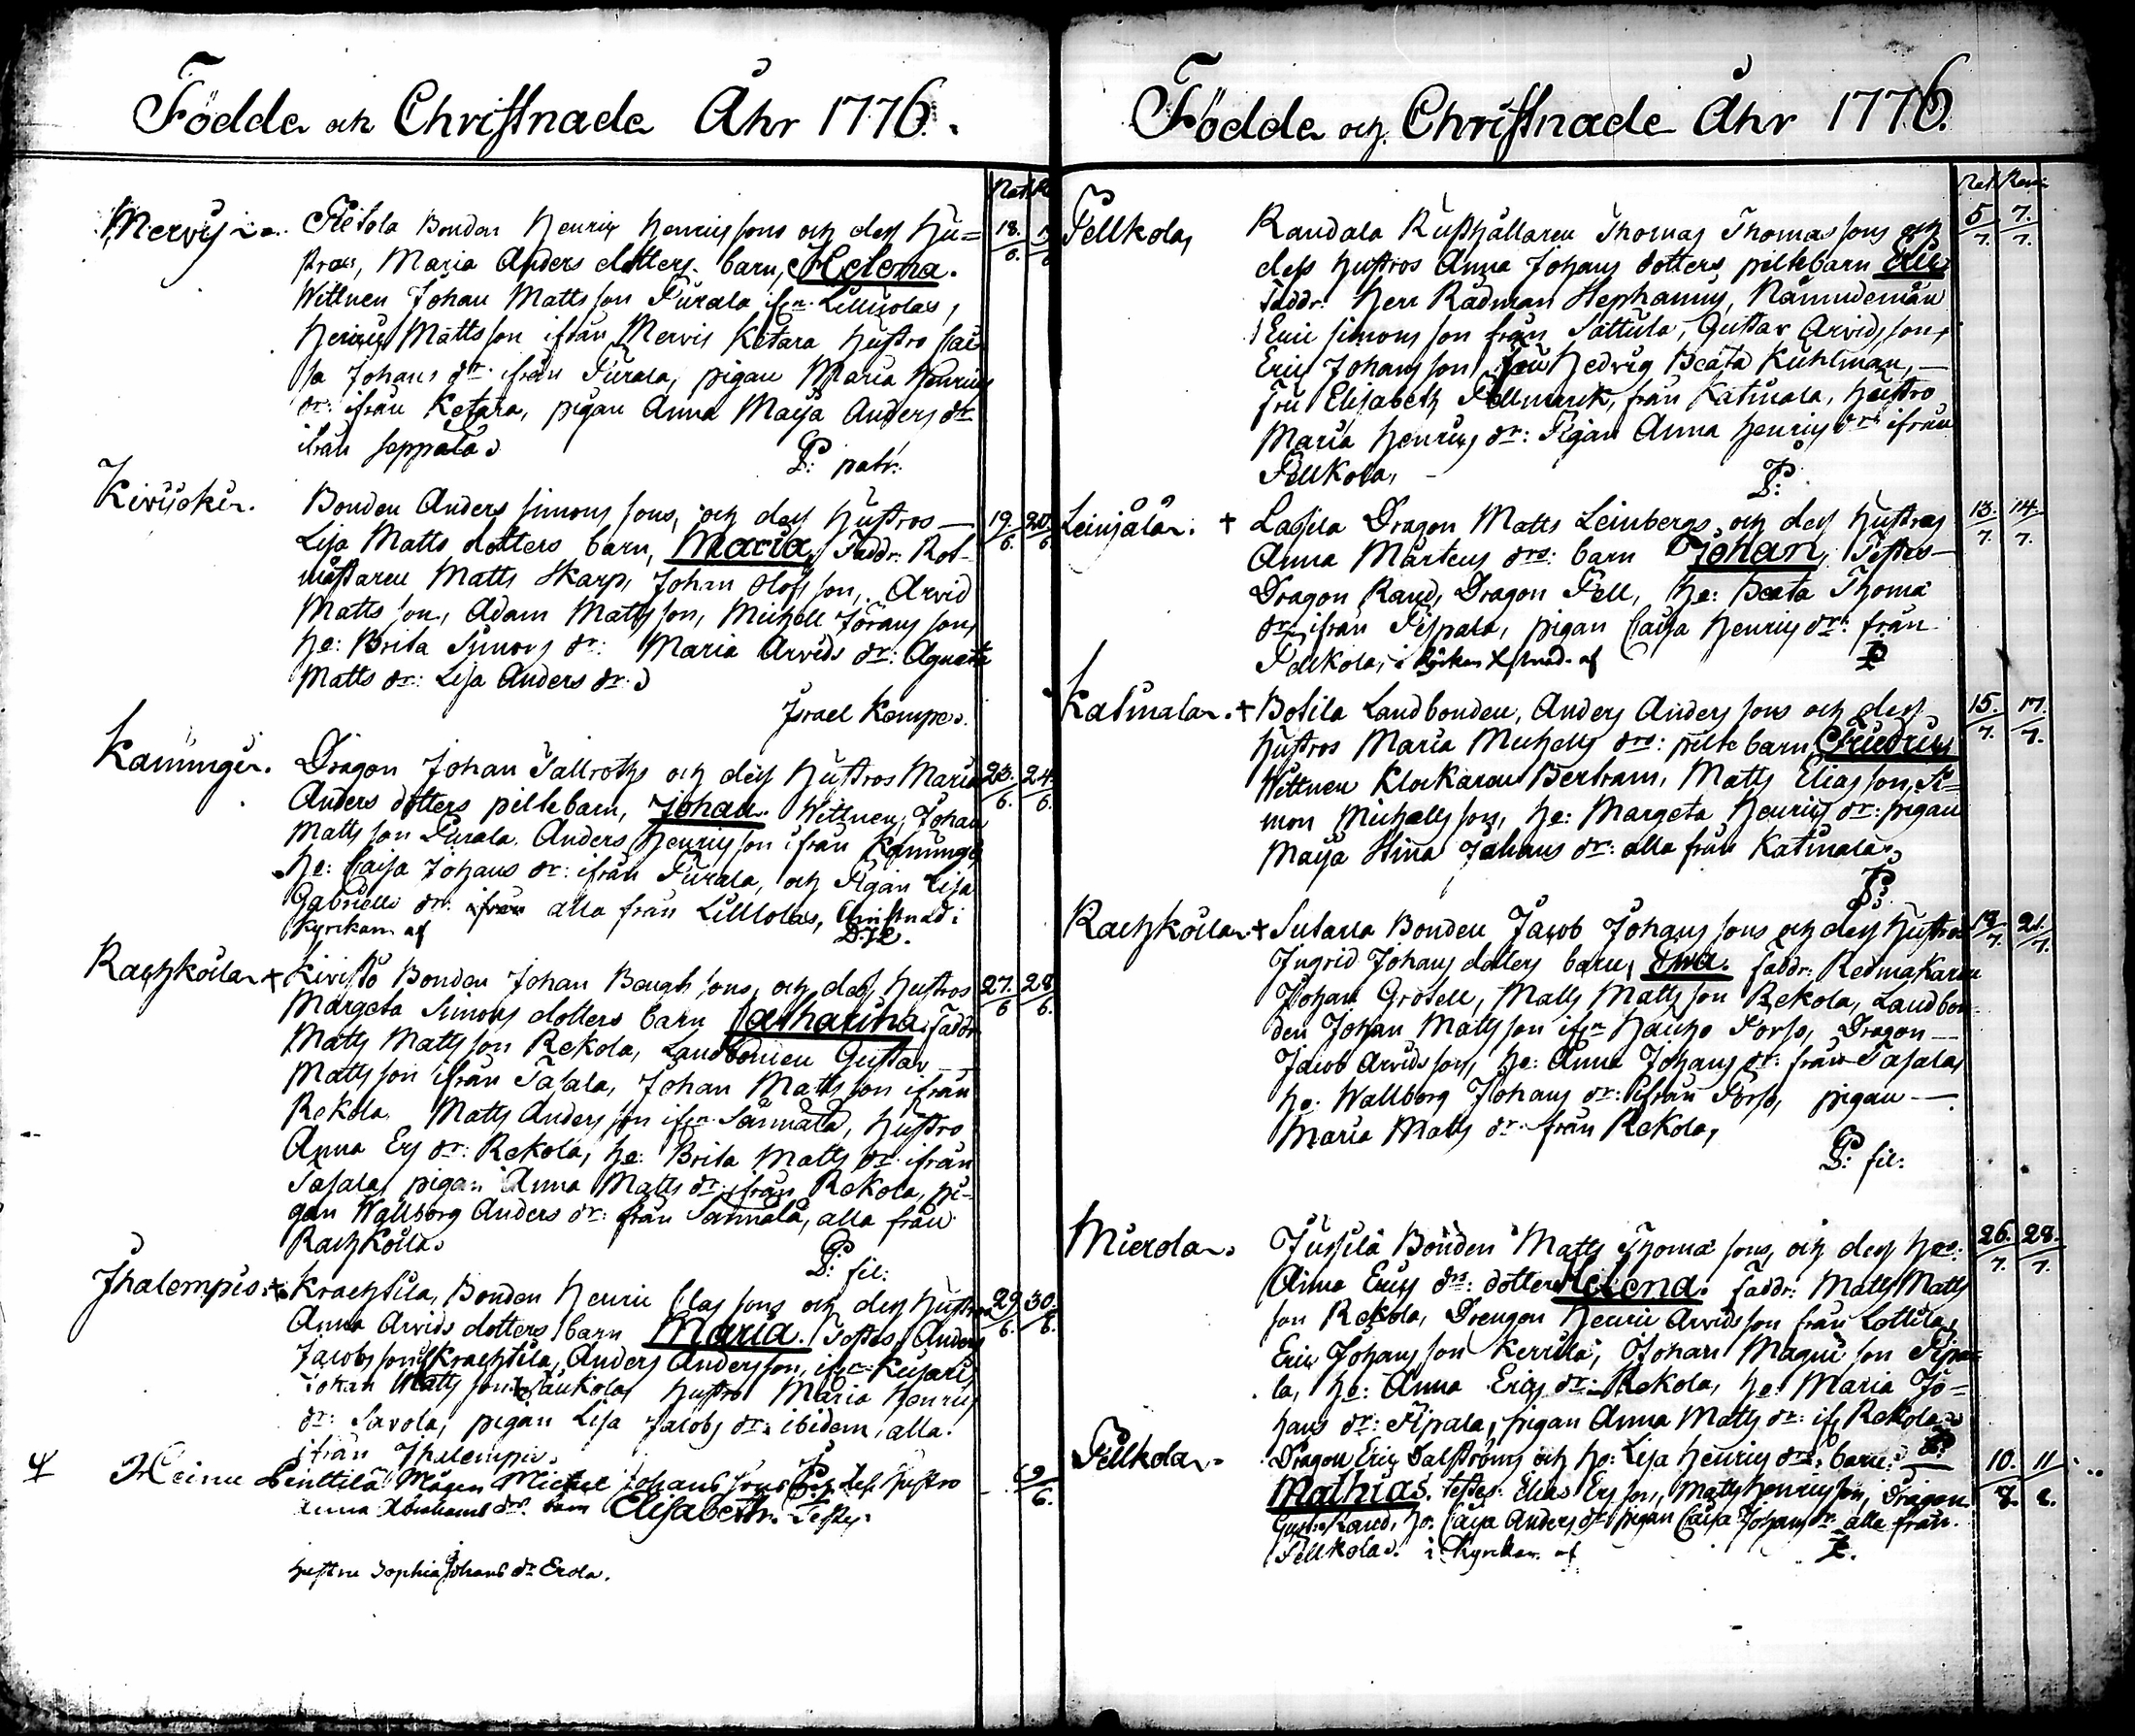 Födde och Christnade Åhr 1776.
Nat. R
Mervis Ketola Bonden Henric Henricssons och dess Hu= 18/6.
stros, Maria Anders dotters barn, Helena.
Wittnen Johan Mattsson Turala ifrn Lillkolas,
Henric Mattsson ifrån Mervis Ketara Hustro Cai
sa Johans dr ifrån Turala, pigan Maria Henrics
dr: ifrån Ketara, pigan Anna Maija Anders dr
ifrån Seppälä
P: patr:
Bonden Anders Simonssons, och dess Hustros 19/6. 20/6
Lisa Matts dotters barn, Maria, Faddr: Rot-
mästaren Matts Skarp, Johan Olofsson, Arvid
Mattsson, Adam Mattsson, Michell Göransson,
he: Brita Simons dr: Maria Arvids dr: Agneta
Matts dr: Lisa Anders dr:
Israel Kempe.
Dragon Johan Tallroths och dess Hustros Maria 23/6. 24/6.
Anders dotters piltebarn, Johan. Wittnen, Johan
Mattsson Turala. Anders Henricsson ifrån
he: Caisa Johans dr: ifrån Turala, och Pigan Lisa
Gabriells dr: alla från Lillkolas, Christnad i
Kyrckan af
Rachkoila + Kivistö Bonden Johan Bengtssons, och dess hustros 27/6 28/6.
Margeta Simons dotters barn Catharina. Faddr
Matts Mattsson Rekola, Landbonden Gustav
Mattsson ifrån Sasala, Johan Mattsson ifrån
Rekola Matts Andersson ifrn Sannala, Hustro
Anna Ers dr: Rekola, he: Brita Matts dr ifrån
Sasala, pigan Anna Matts dr: ifrån Rekola, pi-
gan Wallborg Anders dr: från Sannala, alla från
Rachkoila.
P: fil:
Ihalempis + Krachtila, Bonden Henric Classons och dess Hustros 29/6. 30/6.
Anna Arvids dotters barn Maria. Testes Anders
Jacobsson Krachtila, Anders Andersson, ifrn Kusari,
Johan Mattsson Laukola, Hustro Maria Henrics
dr: Savola, pigan Lisa Jacobs dr: ibidem, alla
ifrån Ihalempis.
P.
Heinu Penttilä Mågen Michel Johanssons och dess Hustro 9/6.
Anna Abrahams drs. barn Elisabeth. Testes.
hustru Sophia Johans dr Erola.
Födde och Christnade Åhr 1776.
Nat. Ren.
Pellkola, Randala Rusthållaren Thomas Thomassons och 5/7. 7/7.
dess hustros Anna Johans dotters piltebarn
Faddr: Herr Rådman Stephanus, Nämndeman
Eric Simonsson från Sattula, Gustav Arvidsson,
Eric Johansson, Fru Hedvig Beata Kuhlman,
Fru Elisabeth Pellmark, från Katinala, hustro
Maria Henrics dr: Pigan Anna Henrics dr ifrån
Pellkola,
P:
+ Lassila Dragon Matts Leinbergs, och dess hustros 13/7. 14/7.
Anna Mårtens drs: barn Johan, Testes
Dragon Rand, Dragon Pell, he: Beata Thoma
dr ifrån Pispala, pigan Caisa Henrics dr: från
Pellkola, i kyrckan Xstnad. af P
Katinala. + Botila Landbonden, Anders Anderssons och dess 15/7. 17/7.
hustros Maria Michells drs: piltebarn, Friedric
Wittnen Klockaren Bertram, Matts Eliasson, Si=
mon Michellsson, he: Margeta Henrics dr: pigan
Maija Stina Johans dr: alla från Katinala.
P:
Rachkoila + Sutarla Bonden Jacob Johanssons och dess hustros 19/7. 21/7.
Ingrid Johans dotters barn, Ewa. Faddr: Redmakaren
Johan Grosell, Matts Mattsson Rekola, Landbon-
den Johan Mattsson ifrn Hauho Porso, Dragon
Jacob Arvidsson, he: Anna Johans dr: från Sasala,
he: Wallborg Johans dr: ifrån Porso, pigan
Maria Matts dr: från Rekola,
P: fil:
Mierola. Jussila Bonden Matts Thomasons, och dess hes: 26/7. 28/7.
Anna Erics drs: dotter Helena. Faddr: Matts Matts
son Rekola, Drengen Henric Arvidsson från Lottila,
Eric Johansson Kerrilä, Johan Magnisson Pispa-
la, he: Anna Erics dr: Rekola, he: Maria Jo=
hans dr: Pispala, pigan Anna Matts dr: if. Rekola
P:
Pellkola. Dragon Eric Salströms och ho: Lisa Henrics drs: barn: 10/8. 11/8.
Mathias. testes: Elias Ersson, Matts Henricsson, Dragon
Gust. Rand, ho: Caisa Anders dr pigan Caisa Johans dr alla från
Pellkola. i Kyrckan af P.